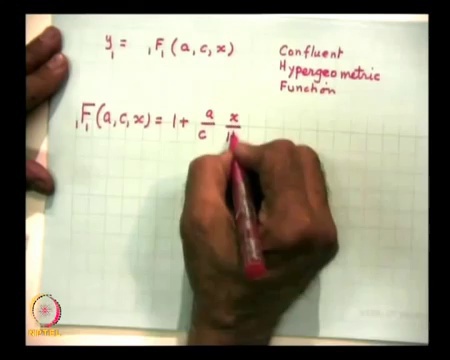 y₁ = ₁F₁ (a, c, x)
Confluent
Hypergeometric
Function
₁F₁ (a, c, x) = 1 + a/c x/1